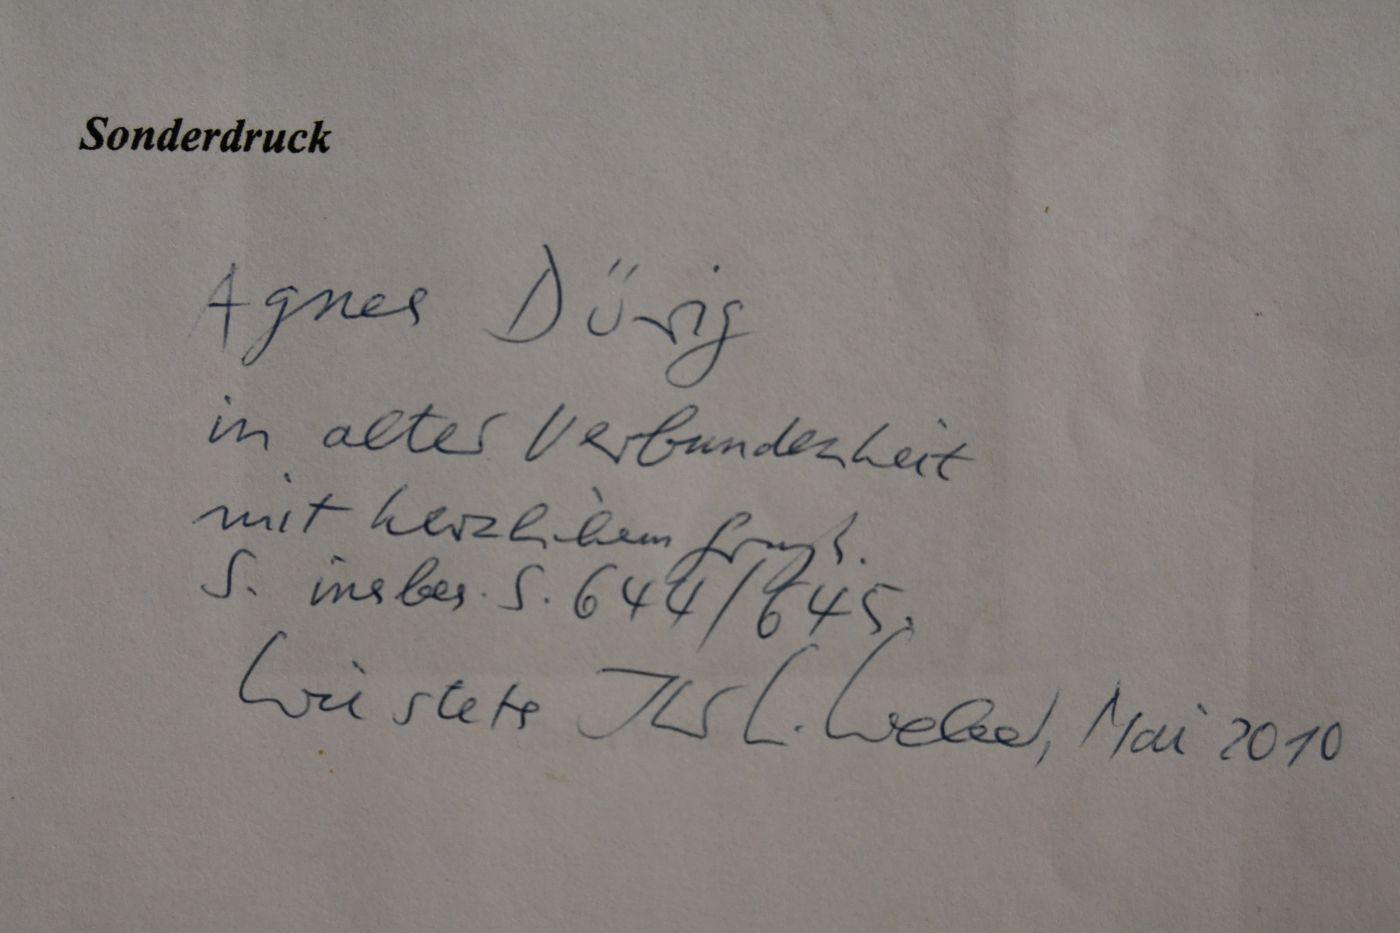 Sonderdruck
Agnes Dürig
in alter Verbundenheit
mit herzlichem Gruß.
S. insbes. S. 644/645.
Wie stets Ihr C. Weber, Mai 2010